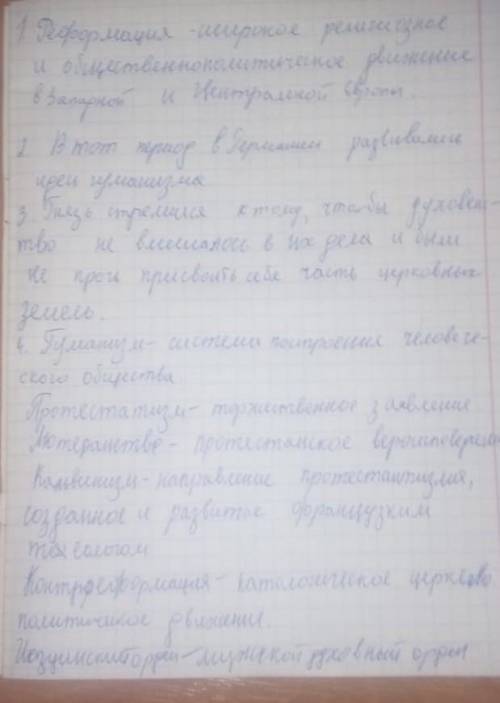 1 Реформация - широкое религиозное
и общественнополитическое движение
в Западной и Центральной Европы.
2. В тот период в Германии развивались
идеи гуманизма
3. Князь стремился к тому, чтобы духовен-
тво не вмешалось в их дела и были
не проч присвоить себе часть церковных
земель.
4. Гуманизм - система построения человече-
ского общества
Протестатизм - торжественное заявление
Лютеранство - протестанское
Кальвинизм - направление протестантизма,
созданное и развитое французким
теологом
Контрреформация - катологическое церковно
политичкое движение.
духовный орден